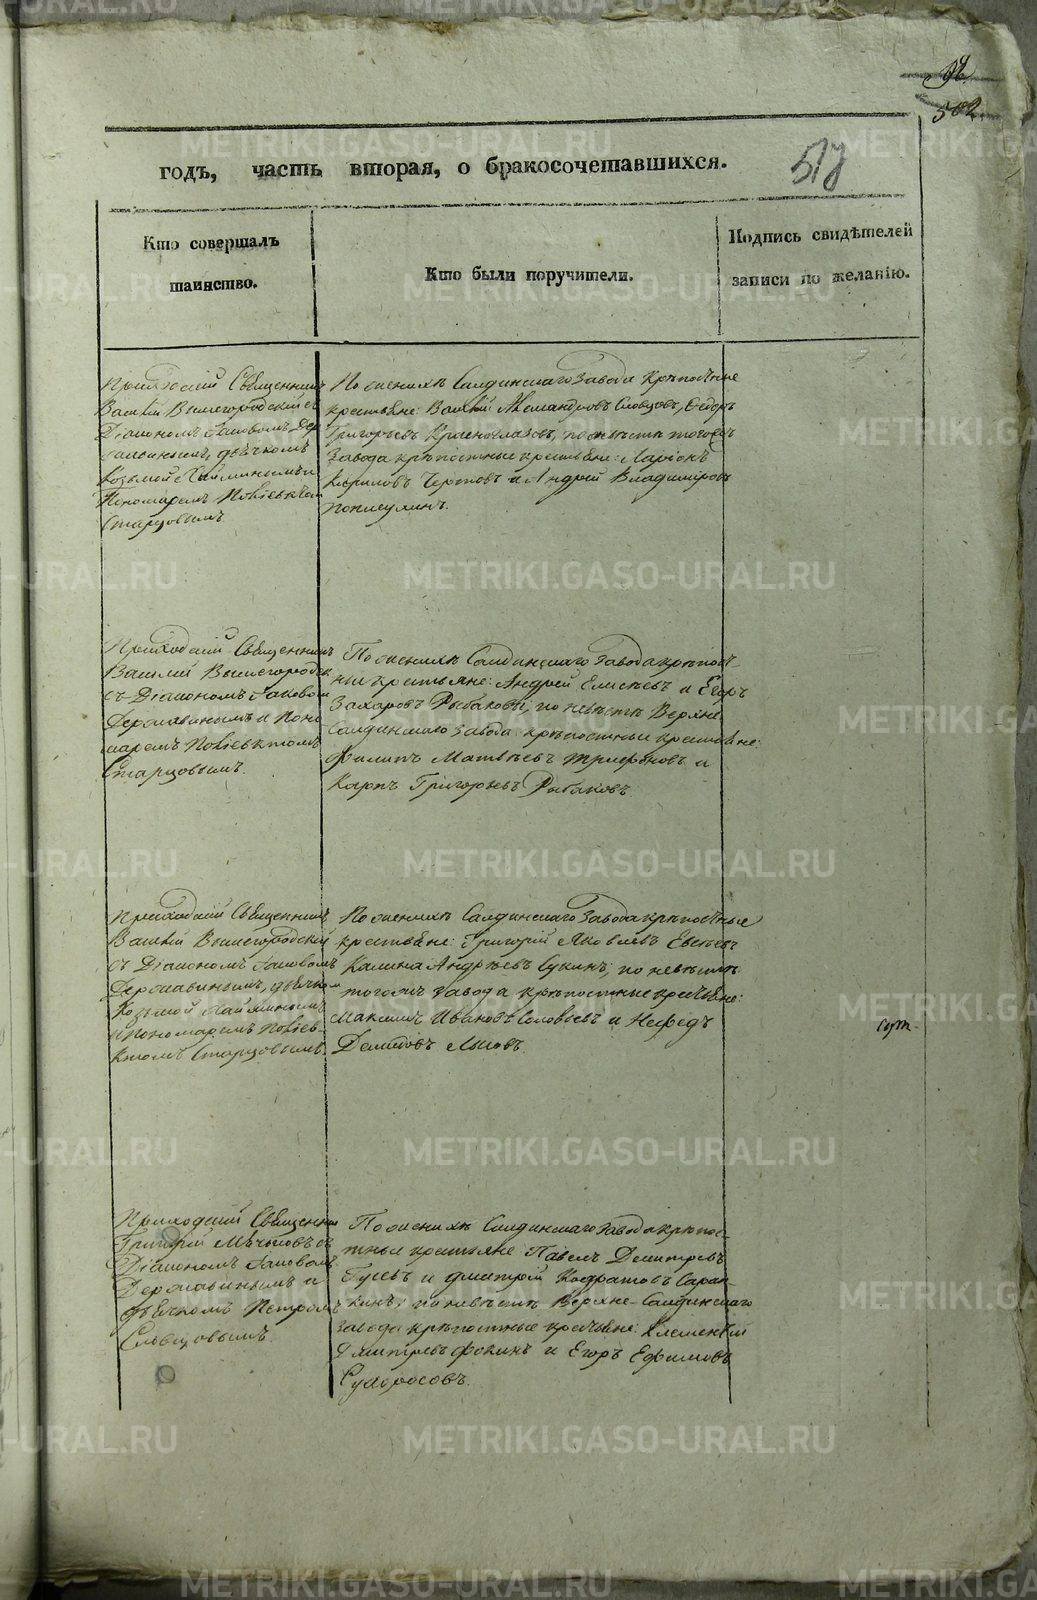 502.
517
годъ, часть вторая, о бракосочетавшихся.
Кто совершалъ
таинство.
Кто были поручители.
Подпись свидѣтелей
записи по желанію.
Приходскій Священникъ
Василій Вышегородскій съ
Діакономъ Іаковомъ Дер
жавинымъ, дьячкомъ
Козьмой Хайминымъ и
Пономаремъ Повіевктом
Старцовымъ.
По женихѣ Салдинскаго Завода крѣпостные
крестьяне: Василій Александровъ Словцовъ, Ѳедоръ
Григорьевъ Красноглазовъ, по невѣстѣ тогожъ
Завода крѣпостные крестьяне: Ларіонъ
Кириловъ Черновъ и Андрей Владиміровъ
Приходскій Священникъ
Василій Вышегородск
съ Діакономъ Іаковом
Державинымъ и Поно
маремъ Повіевктомъ
Старцовымъ.
По женихѣ Салдинскаго Завода крѣпост-
ные крестьяне: Андрей Елисѣевъ и Егоръ
Захаровъ Рыбаковы, по невѣстѣ Верхне
Салдинскаго завода крѣпостные крестьяне:
Филипъ Матвѣевъ Трифоновъ и
Карпъ Григорьевъ Рыбаковъ.
Приходскій Священникъ
Василій Вышегородскій
съ Діакономъ Іаковомъ
Державинымъ, дьячком
Козьмой Хайминымъ
и Пономаремъ Повіев-
ктомъ Старцовымъ.
По женихѣ Салдинскаго Завода крѣпостные
крестьяне: Григорій Яковлевъ Евсѣевъ
Калина Андрѣевъ Сукинъ, по невѣстѣ
тогожъ завода крѣпостные крестьяне:
Максимъ Ивановъ Соловьевъ и Нефедъ
Демидовъ
Приходскій Священник
Григорій съ
Діакономъ Іаковомъ
Державинымъ и
дьячкомъ Петромъ
Словцовымъ.
По женихѣ Салдинскаго завода крѣпос-
тные крестьяне Павелъ Дмитревъ
Гусевъ и Дмитрій Кодратовъ Саран-
кинъ; по невѣстѣ Верхне-Салдинскаго
завода крѣпостные крестьяне: Клементій
Дмитревъ Фокинъ и Егоръ Ефимовъ
Сухоросовъ.
METRIKI.GASO-URAL.RU